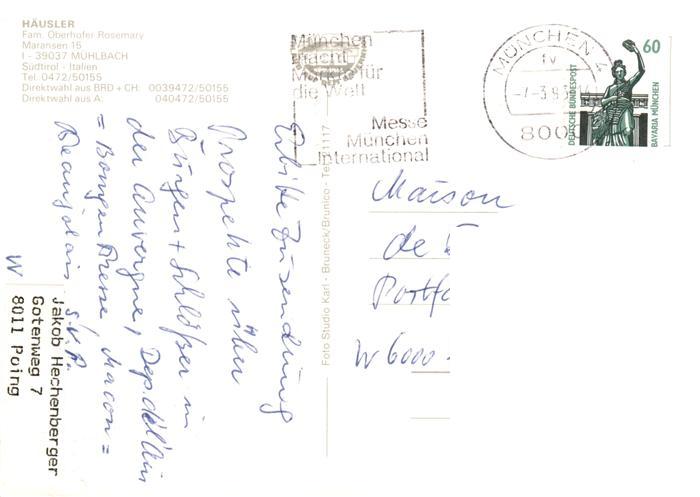 HÄUSLER
Fam. Oberhofer Rosemary
Maransen 15
I - 39037 MÜHLBACH
Südtirol - Italien
Tel. 0472/50155
Direktwahl aus BRD + CH: 0039472/50155
Direktwahl aus A: 040472/50155
München
macht
München für
die Welt
Messe
München
International
MÜNCHEN 4
fv
-7-3.9
800
60
DEUTSCHE BUNDESPOST
BAVARIA MÜNCHEN
Erbitte Zusendung
Prospekte über
Burgen + Schlößer in
der Auvergne, Dep. de l'Ain
= Bourg en Bresse, Macon =
Beaujolais S.V.P.
W
Jakob Hechenberger
Gotenweg 7
8011 Poing
Foto Studio Karl - Bruneck/Brunico - Tel. 1117
Maison
de
Postfa
W 6000 -